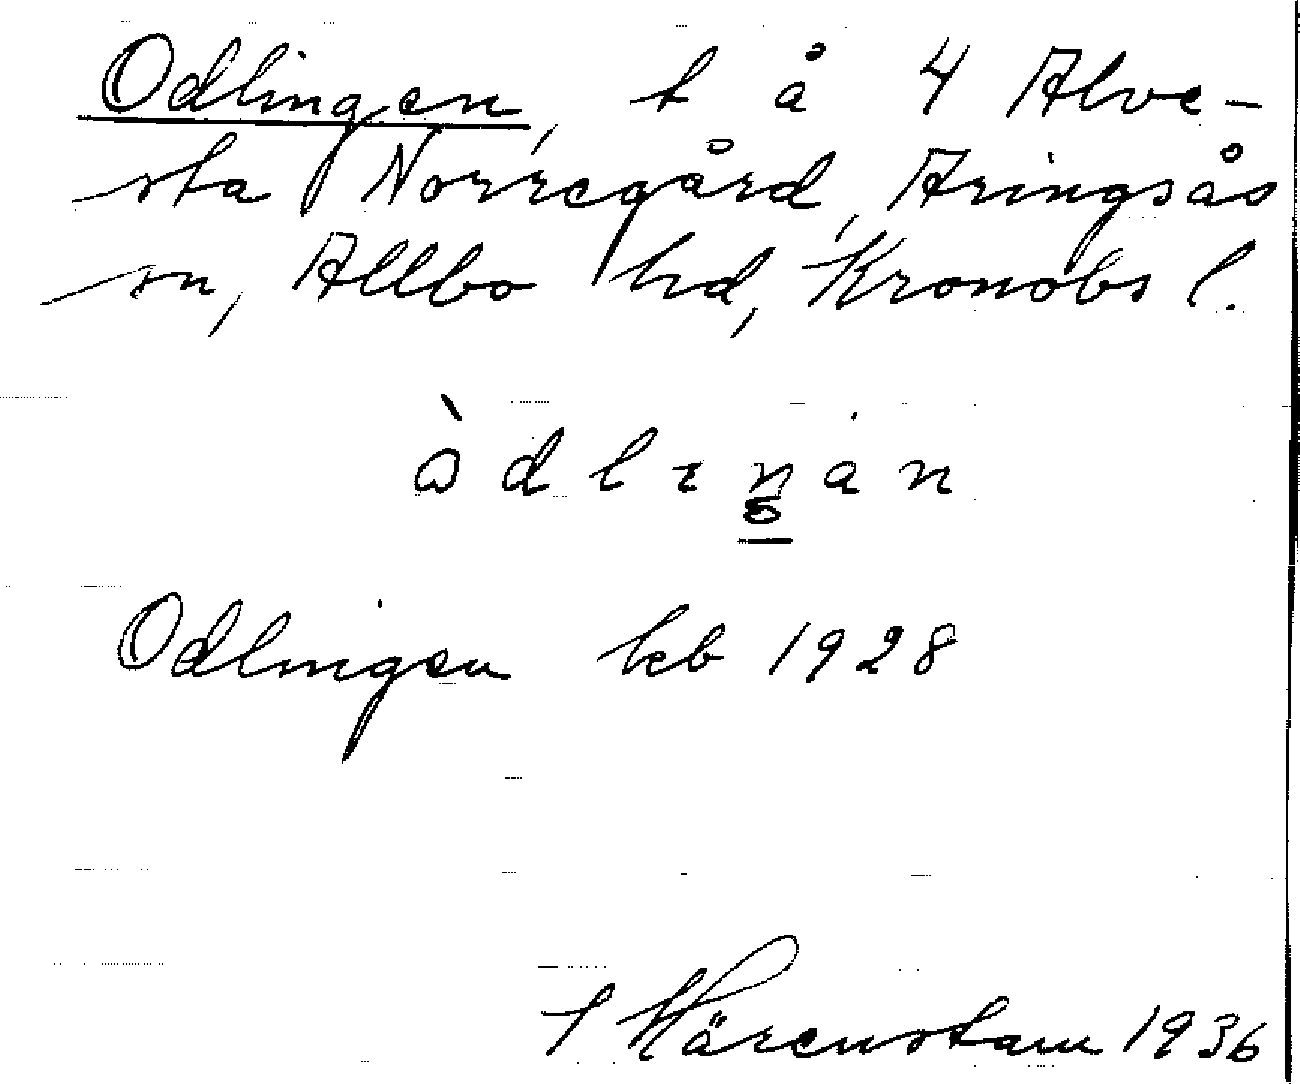 Odlingen, t å 4 Alve-
sta Norregård, Aringsås
sn, Allbo hd, Kronobs l.
ò d l ı n a n
Odlingen kb 1928
Härenstam 1936